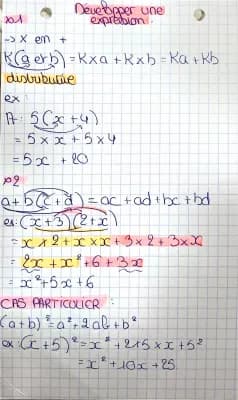 Développer une
expression.
n°1
→ x en +
K(a et b) = K×a + K×b = Ka + Kb
distributive
ex :
A : 5(x+4)
= 5 × x + 5 × 4
= 5x + 20
n°2
a+b(c+d) = ac + ad + bc + bd
ex: (x+3)(2+x)
= x×2 + x×x + 3×2 + 3×x
= 2x + x² + 6 + 3x
= x² + 5x + 6
CAS PARTICULIER :
(a+b)² = a² + 2ab + b²
ex : (x+5)² = x² + 2×5×x + 5²
= x² + 10x + 25